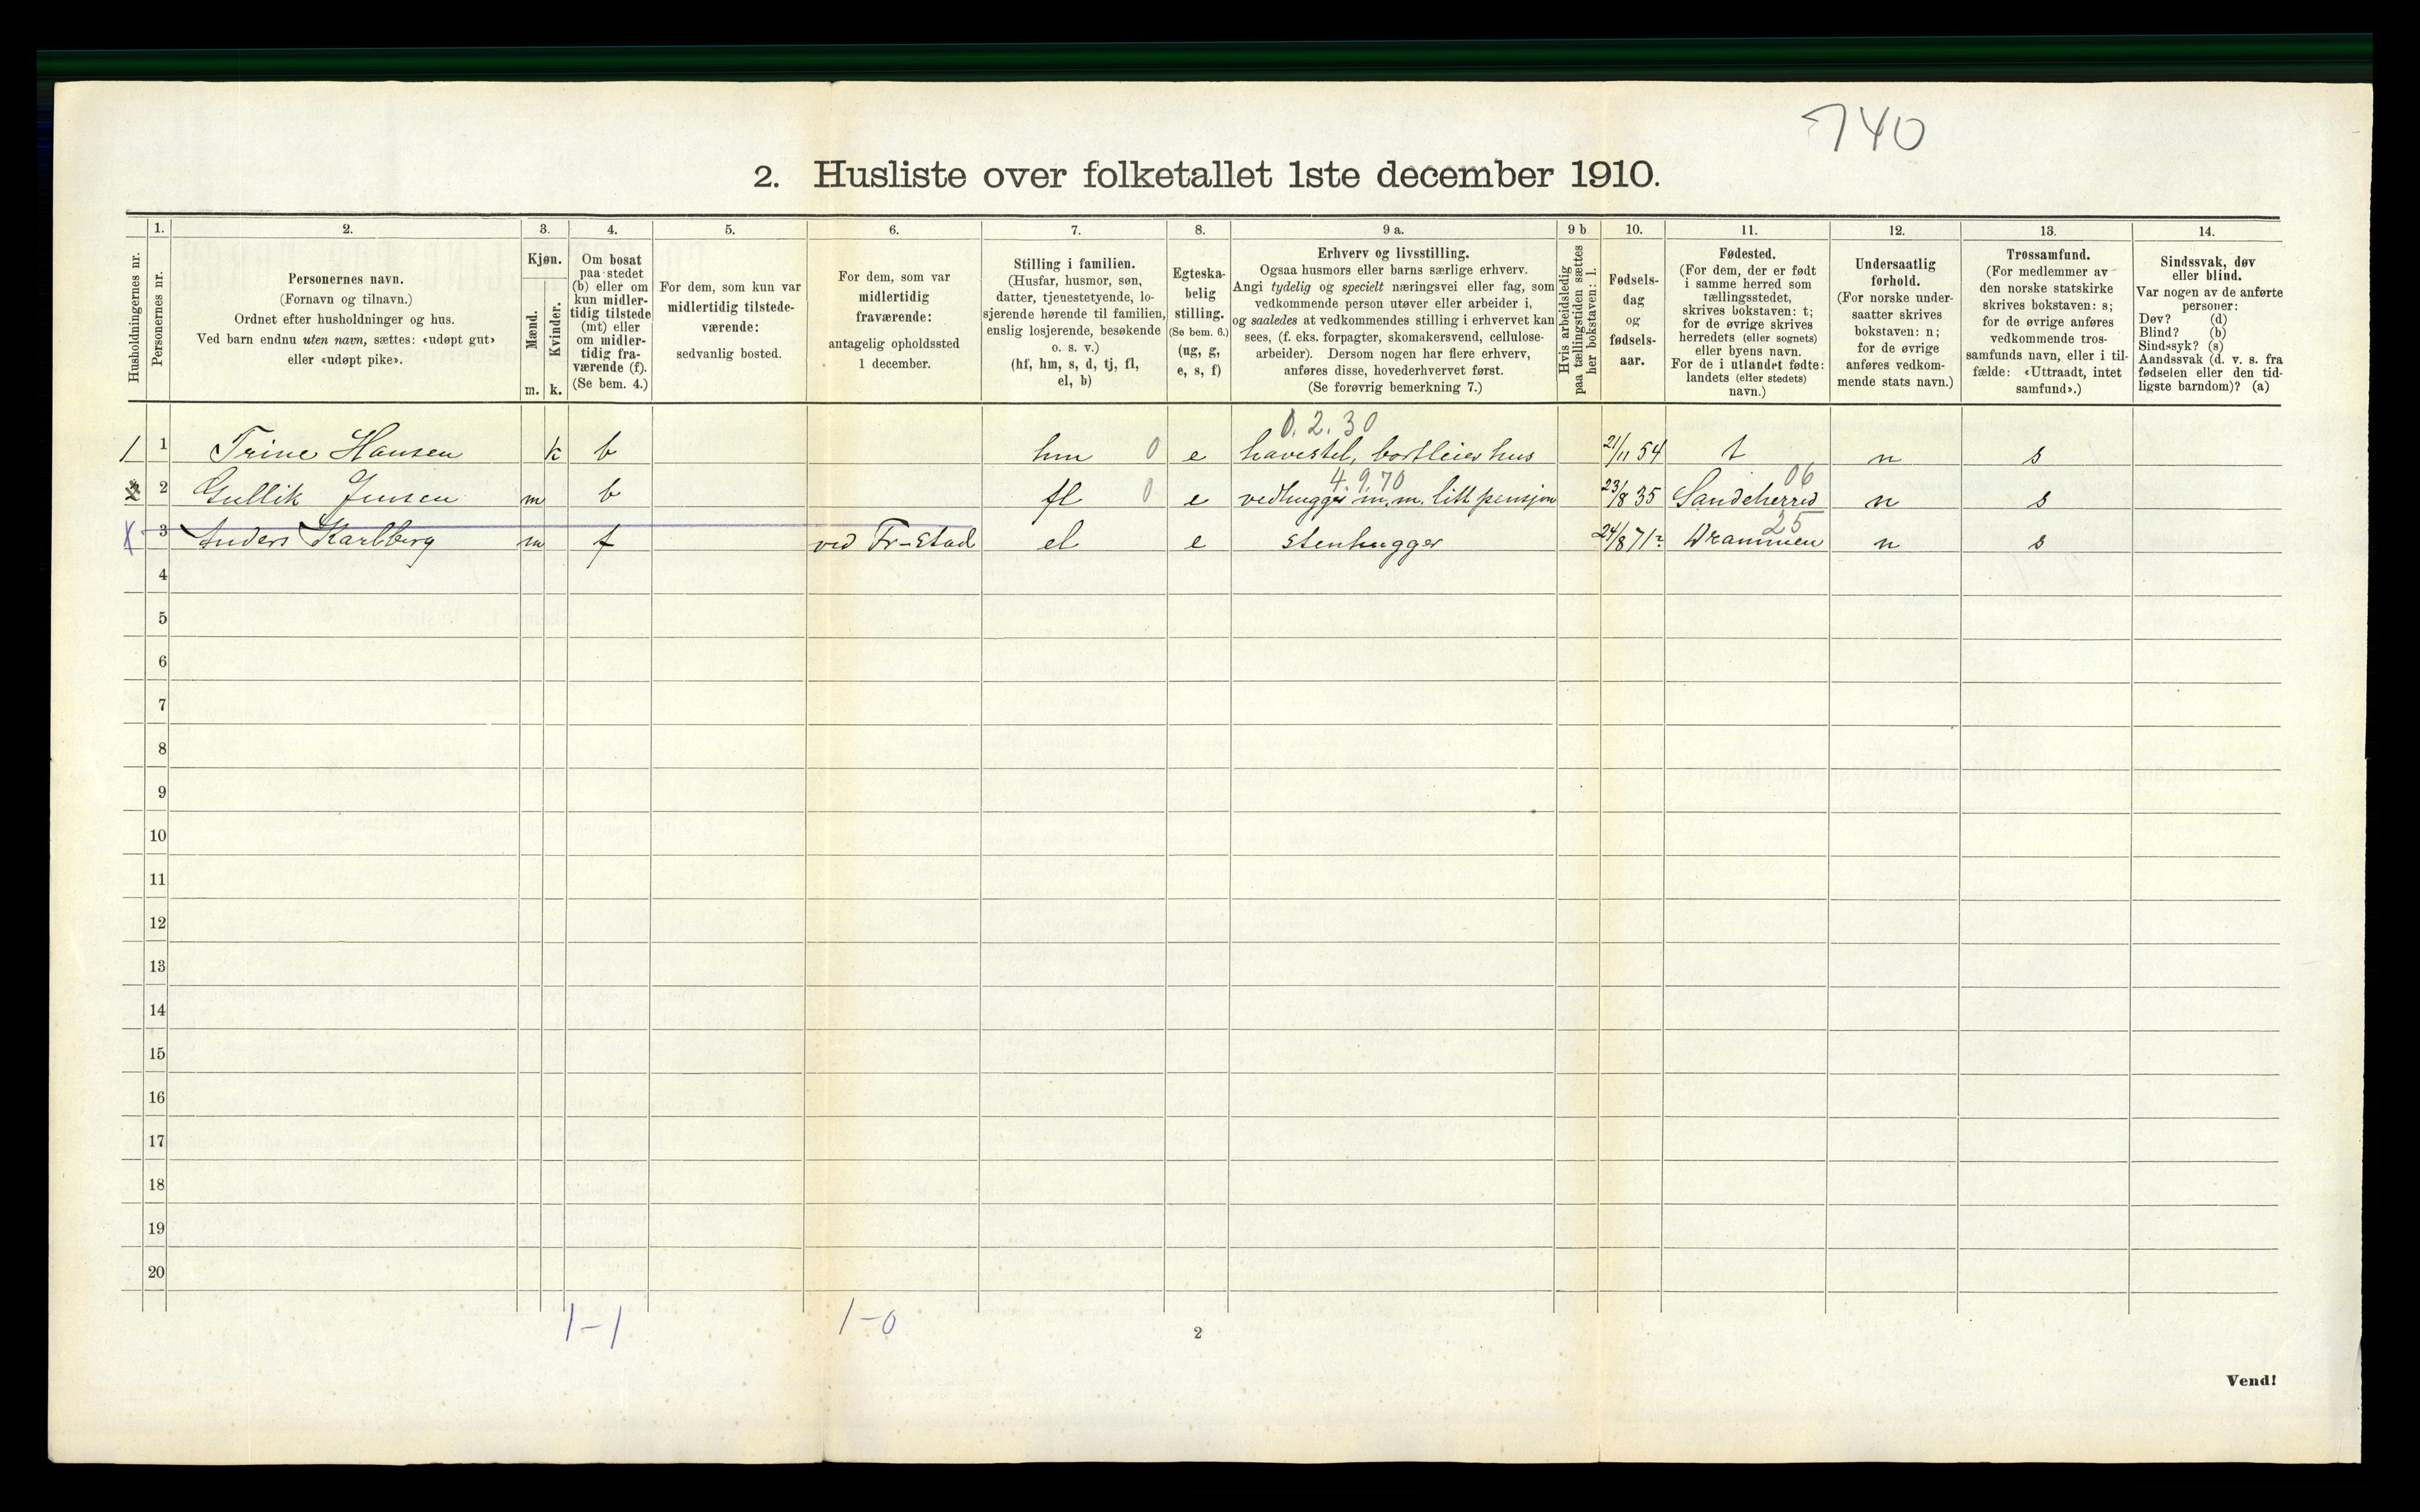 740
2. Husliste over folketallet 1ste december 1910.
Husholdningernes nr.
1.
Personernes nr.
2.
Personernes navn.
(Fornavn og tilnavn.)
Ordnet efter husholdninger og hus.
Ved barn endnu uten navn, sættes: «udøpt gut»
eller «udøpt pike».
3.
Kjøn.
Mænd.
Kvinder.
m. k.
4.
Om bosat
paa stedet
(b) eller om
kun midler-
tidig tilstede
(mt) eller
om midler-
tidig fra-
værende (f).
(Se bem. 4.)
5.
For dem, som kun var
midlertidig tilstede-
værende:
sedvanlig bosted.
6.
For dem, som var
midlertidig
fraværende:
antagelig opholdssted
1 december.
7.
Stilling i familien.
(Husfar, husmor, søn,
datter, tjenestetyende, lo-
sjerende hørende til familien,
enslig losjerende, besøkende
o. s. v.)
(hf, hm, s, d, tj, fl,
el, b)
8.
Egteska-
belig
stilling.
(Se bem. 6.)
(ug, g,
e, s, f)
9 a.
Erhverv og livsstilling.
Ogsaa husmors eller barns særlige erhverv.
Angi tydelig og specielt næringsvei eller fag, som
vedkommende person utøver eller arbeider i,
og saaledes at vedkommendes stilling i erhvervet kan
sees, (f. eks. forpagter, skomakersvend, cellulose-
arbeider). Dersom nogen har flere erhverv,
anføres disse, hovederhvervet først.
(Se forøvrig bemerkning 7.)
9 b
Hvis arbeidsledig
paa tællingstiden sættes
her bokstaven: l.
10.
Fødsels-
dag
og
fødsels-
aar.
11.
Fødested.
(For dem, der er født
i samme herred som
tællingsstedet,
skrives bokstaven: t;
for de øvrige skrives
herredets (eller sognets)
eller byens navn.
For de i utlandet fødte:
landets (eller stedets)
navn.)
12.
Undersaatlig
forhold.
(For norske under-
saatter skrives
bokstaven: n;
for de øvrige
anføres vedkom-
mende stats navn.)
13.
Trossamfund.
(For medlemmer av
den norske statskirke
skrives bokstaven: s;
for de øvrige anføres
vedkommende tros-
samfunds navn, eller i til-
fælde: «Uttraadt, intet
samfund».)
14.
Sindssvak, døv
eller blind.
Var nogen av de anførte
personer:
Døv? (d)
Blind? (b)
Sindssyk? (s)
Aandssvak (d. v. s. fra
fødselen eller den tid-
ligste barndom)? (a)
0. 2. 30
1 1 Trine Hansen k b hm 0 e havestel, bortleier hus 21/11 54 t n s
4. 9. 70 06
2 2 Gullik Jensen m b fl 0 e vedhugger m.m. litt pensjon 23/8 35 Sandeherred n s
25
X 3 Anders Karlberg m f ved Fr-stad el e stenhugger 24/8 71? Drammen n s
4
5
6
7
8
9
10
11
12
13
14
15
16
17
18
19
20
1-1 1-0
2
Vend!